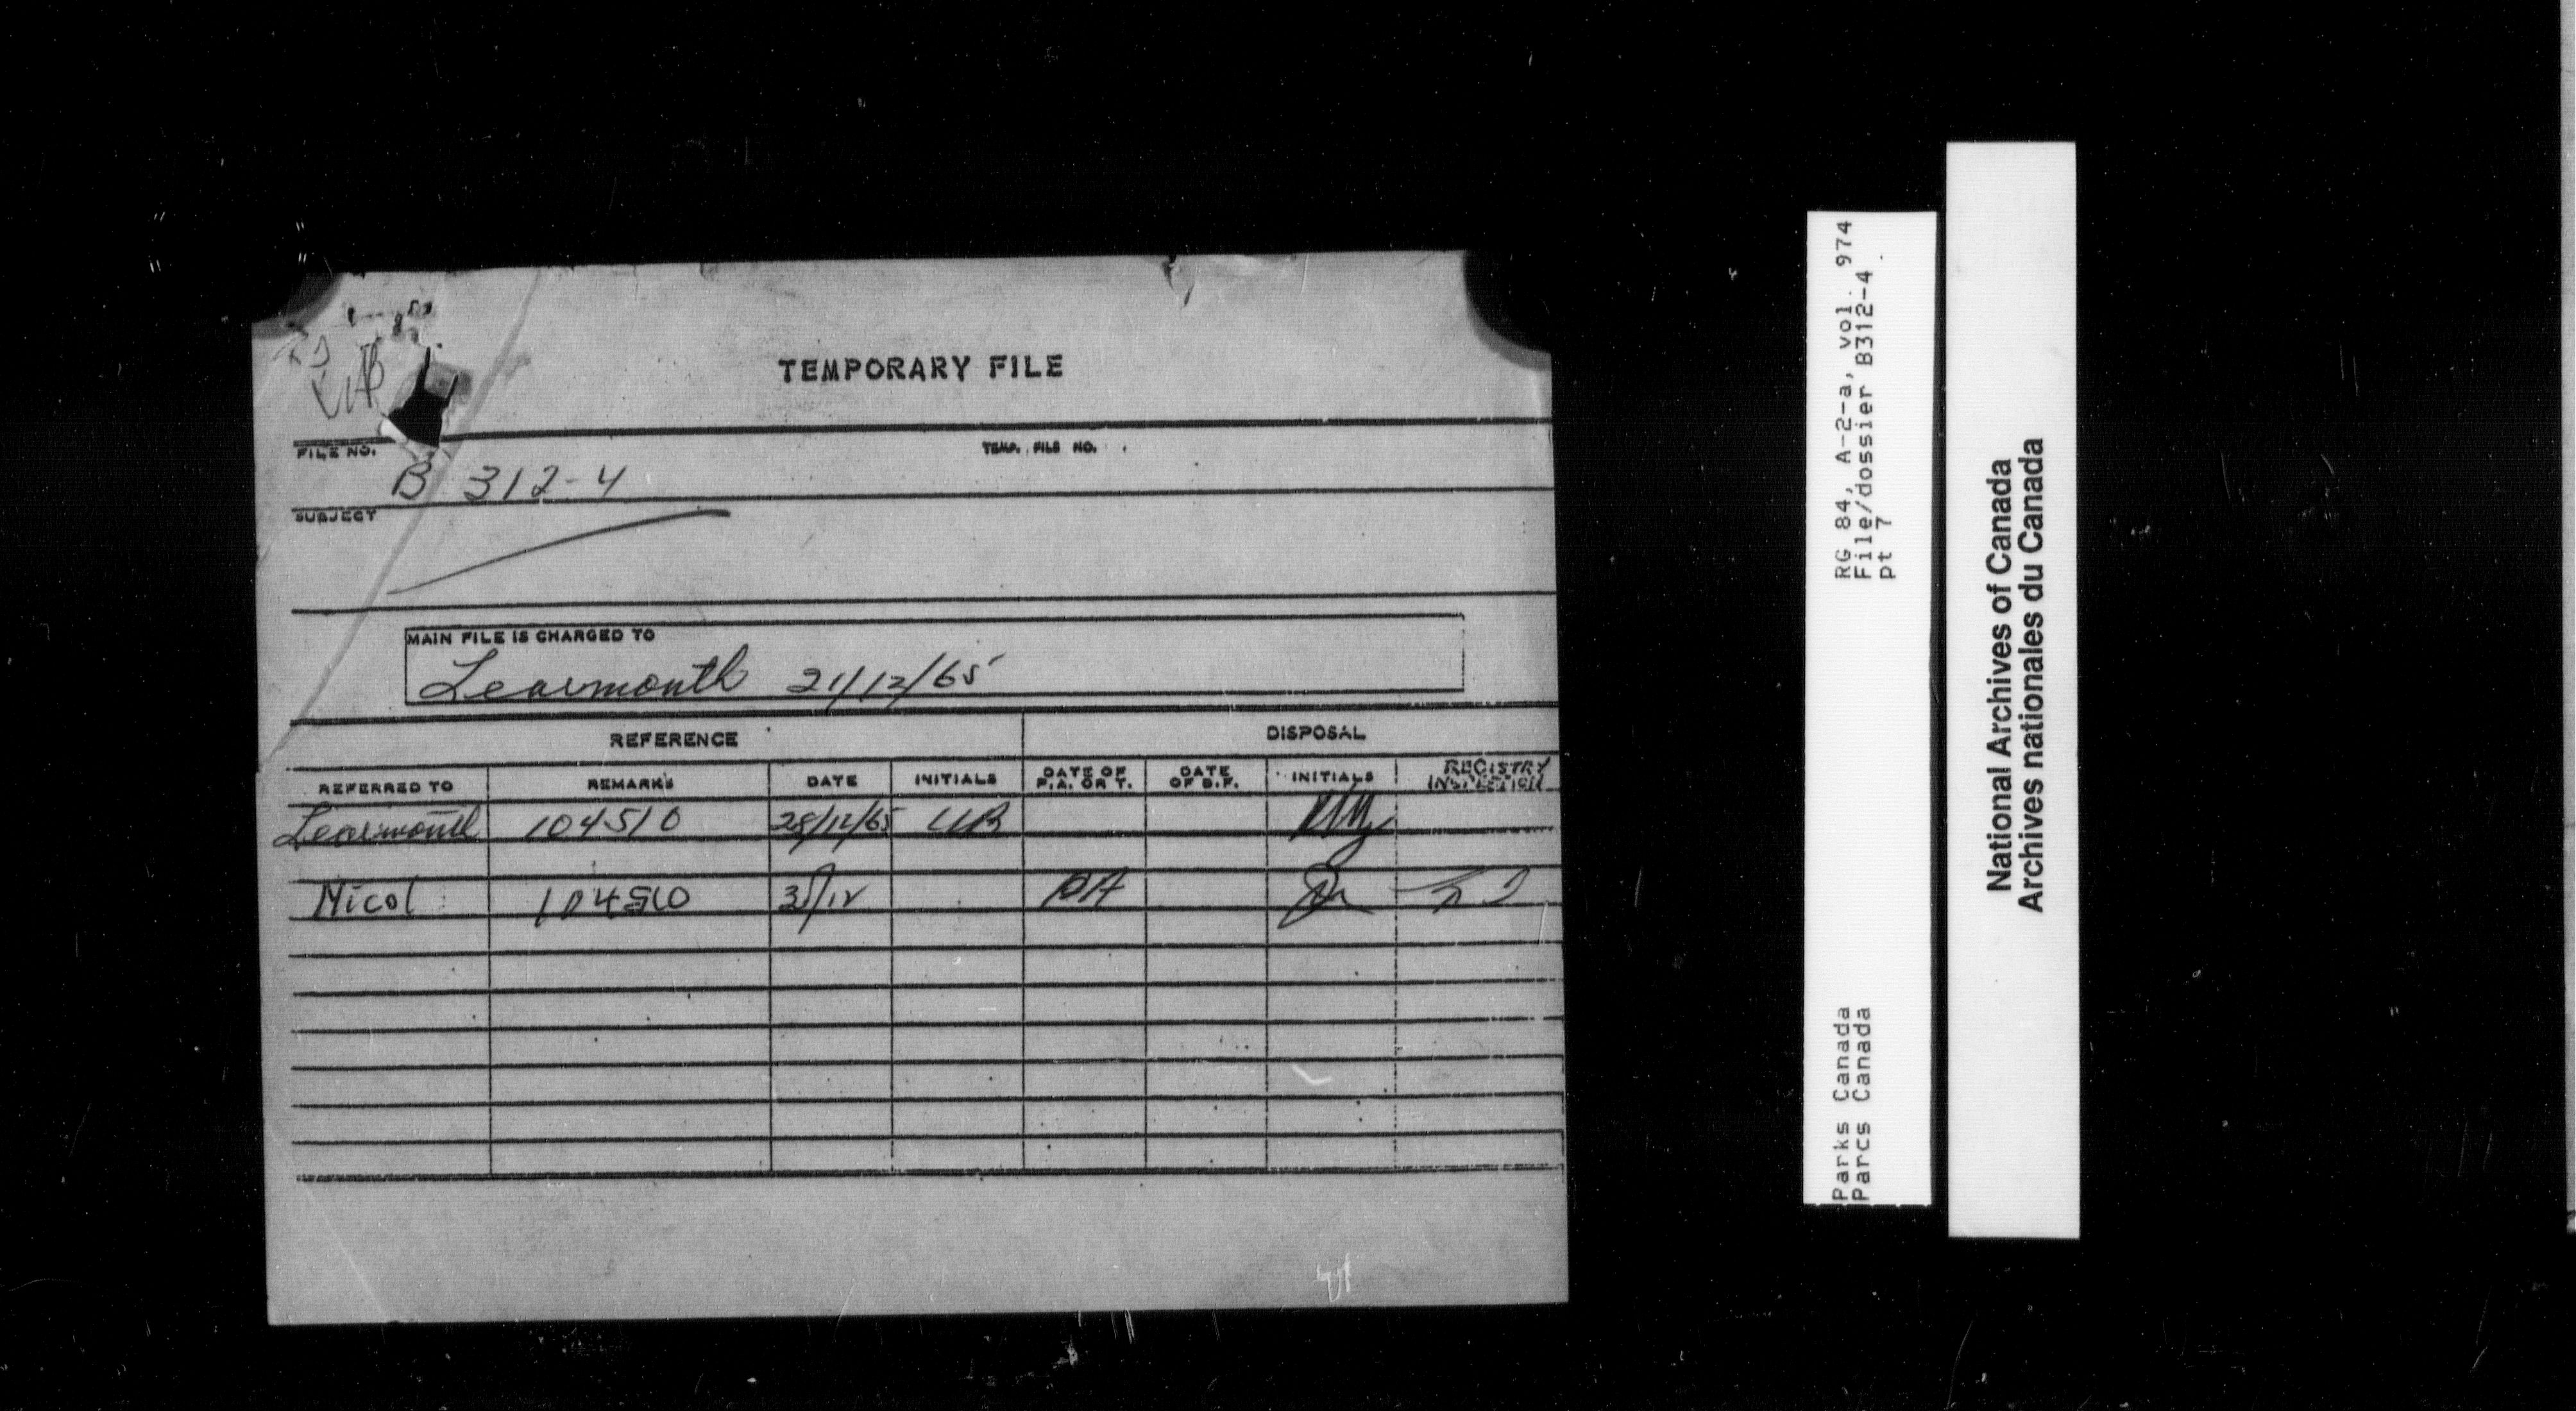 TEMPORARY FILE
FILE NO. TEMP. FILE NO.
B 312-4
SUBJECT
MAIN FILE IS CHARGED TO
Learmonth 21/12/65
REFERENCE DISPOSAL
REFERRED TO REMARKS DATE INITIALS DATE OF P.A. OR T. DATE OF B.F. INITIALS REGISTRY INSPECTION
Learmonth 104510 28/12/65
Nicol 104510 PA
RG 84, A-2-a, vol. 974
File/dossier B312-4
pt 7
Parks Canada
Parcs Canada
National Archives of Canada
Archives nationales du Canada